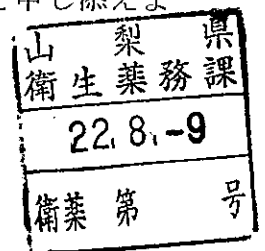 と申し添えよ
山梨県
衛生薬務課
22.8.-9
衛薬第 号